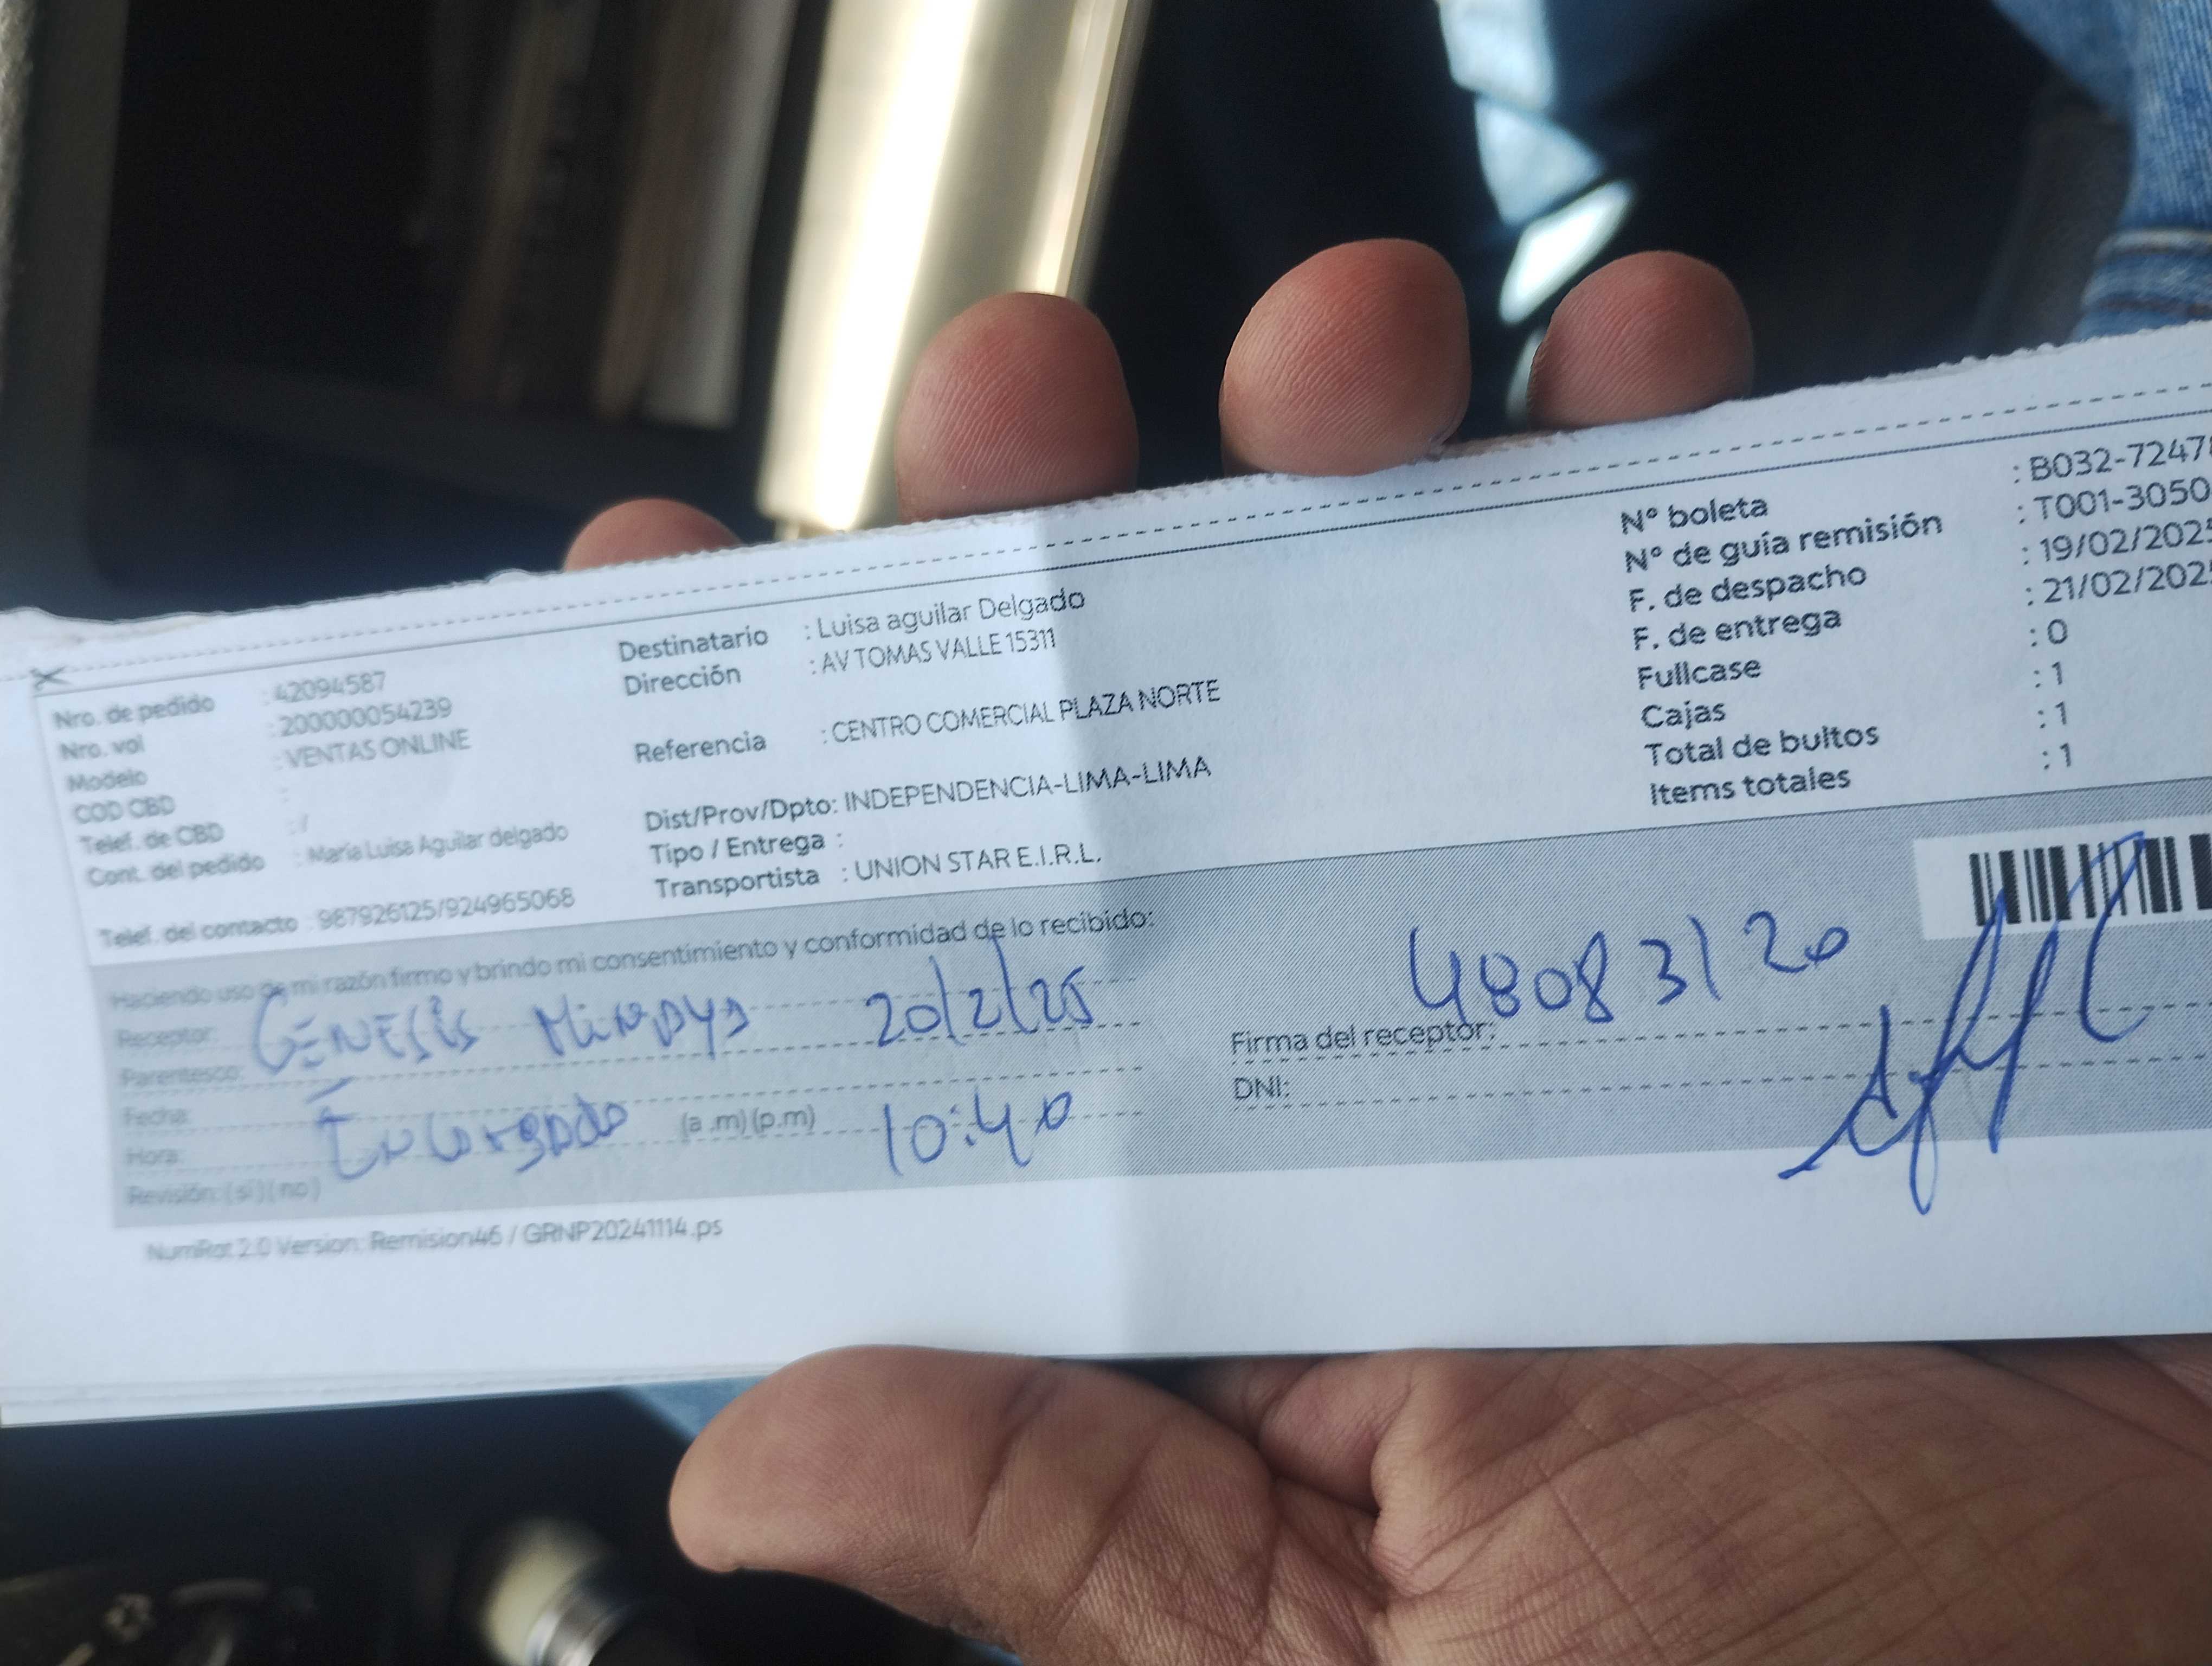 Nro. de pedido : 42094587
Nro. vol : 200000054239
Modelo : VENTAS ONLINE
COD CBD :
Telef. de CBD : /
Cont. del pedido : María Luisa Aguilar delgado
Telef. del contacto : 987926125/924965068
Destinatario : Luisa aguilar Delgado
Dirección : AV TOMAS VALLE 15311
Referencia : CENTRO COMERCIAL PLAZA NORTE
Dist/Prov/Dpto: INDEPENDENCIA-LIMA-LIMA
Tipo / Entrega :
Transportista : UNION STAR E.I.R.L.
N° boleta : B032-7247
N° de guía remisión : T001-3050
F. de despacho : 19/02/2025
F. de entrega : 21/02/202
Fullcase : 0
Cajas : 1
Total de bultos : 1
Items totales : 1
Haciendo uso de mi razón firmo y brindo mi consentimiento y conformidad de lo recibido:
Receptor: GENESIS 20/2/25
Parentesco:
Fecha:
Hora: Encargado (a .m) (p.m) 10:40
Revisión: (si) (no)
48083120
Firma del receptor:
DNI:
NumRot 2.0 Version: Remision46 / GRNP20241114.ps